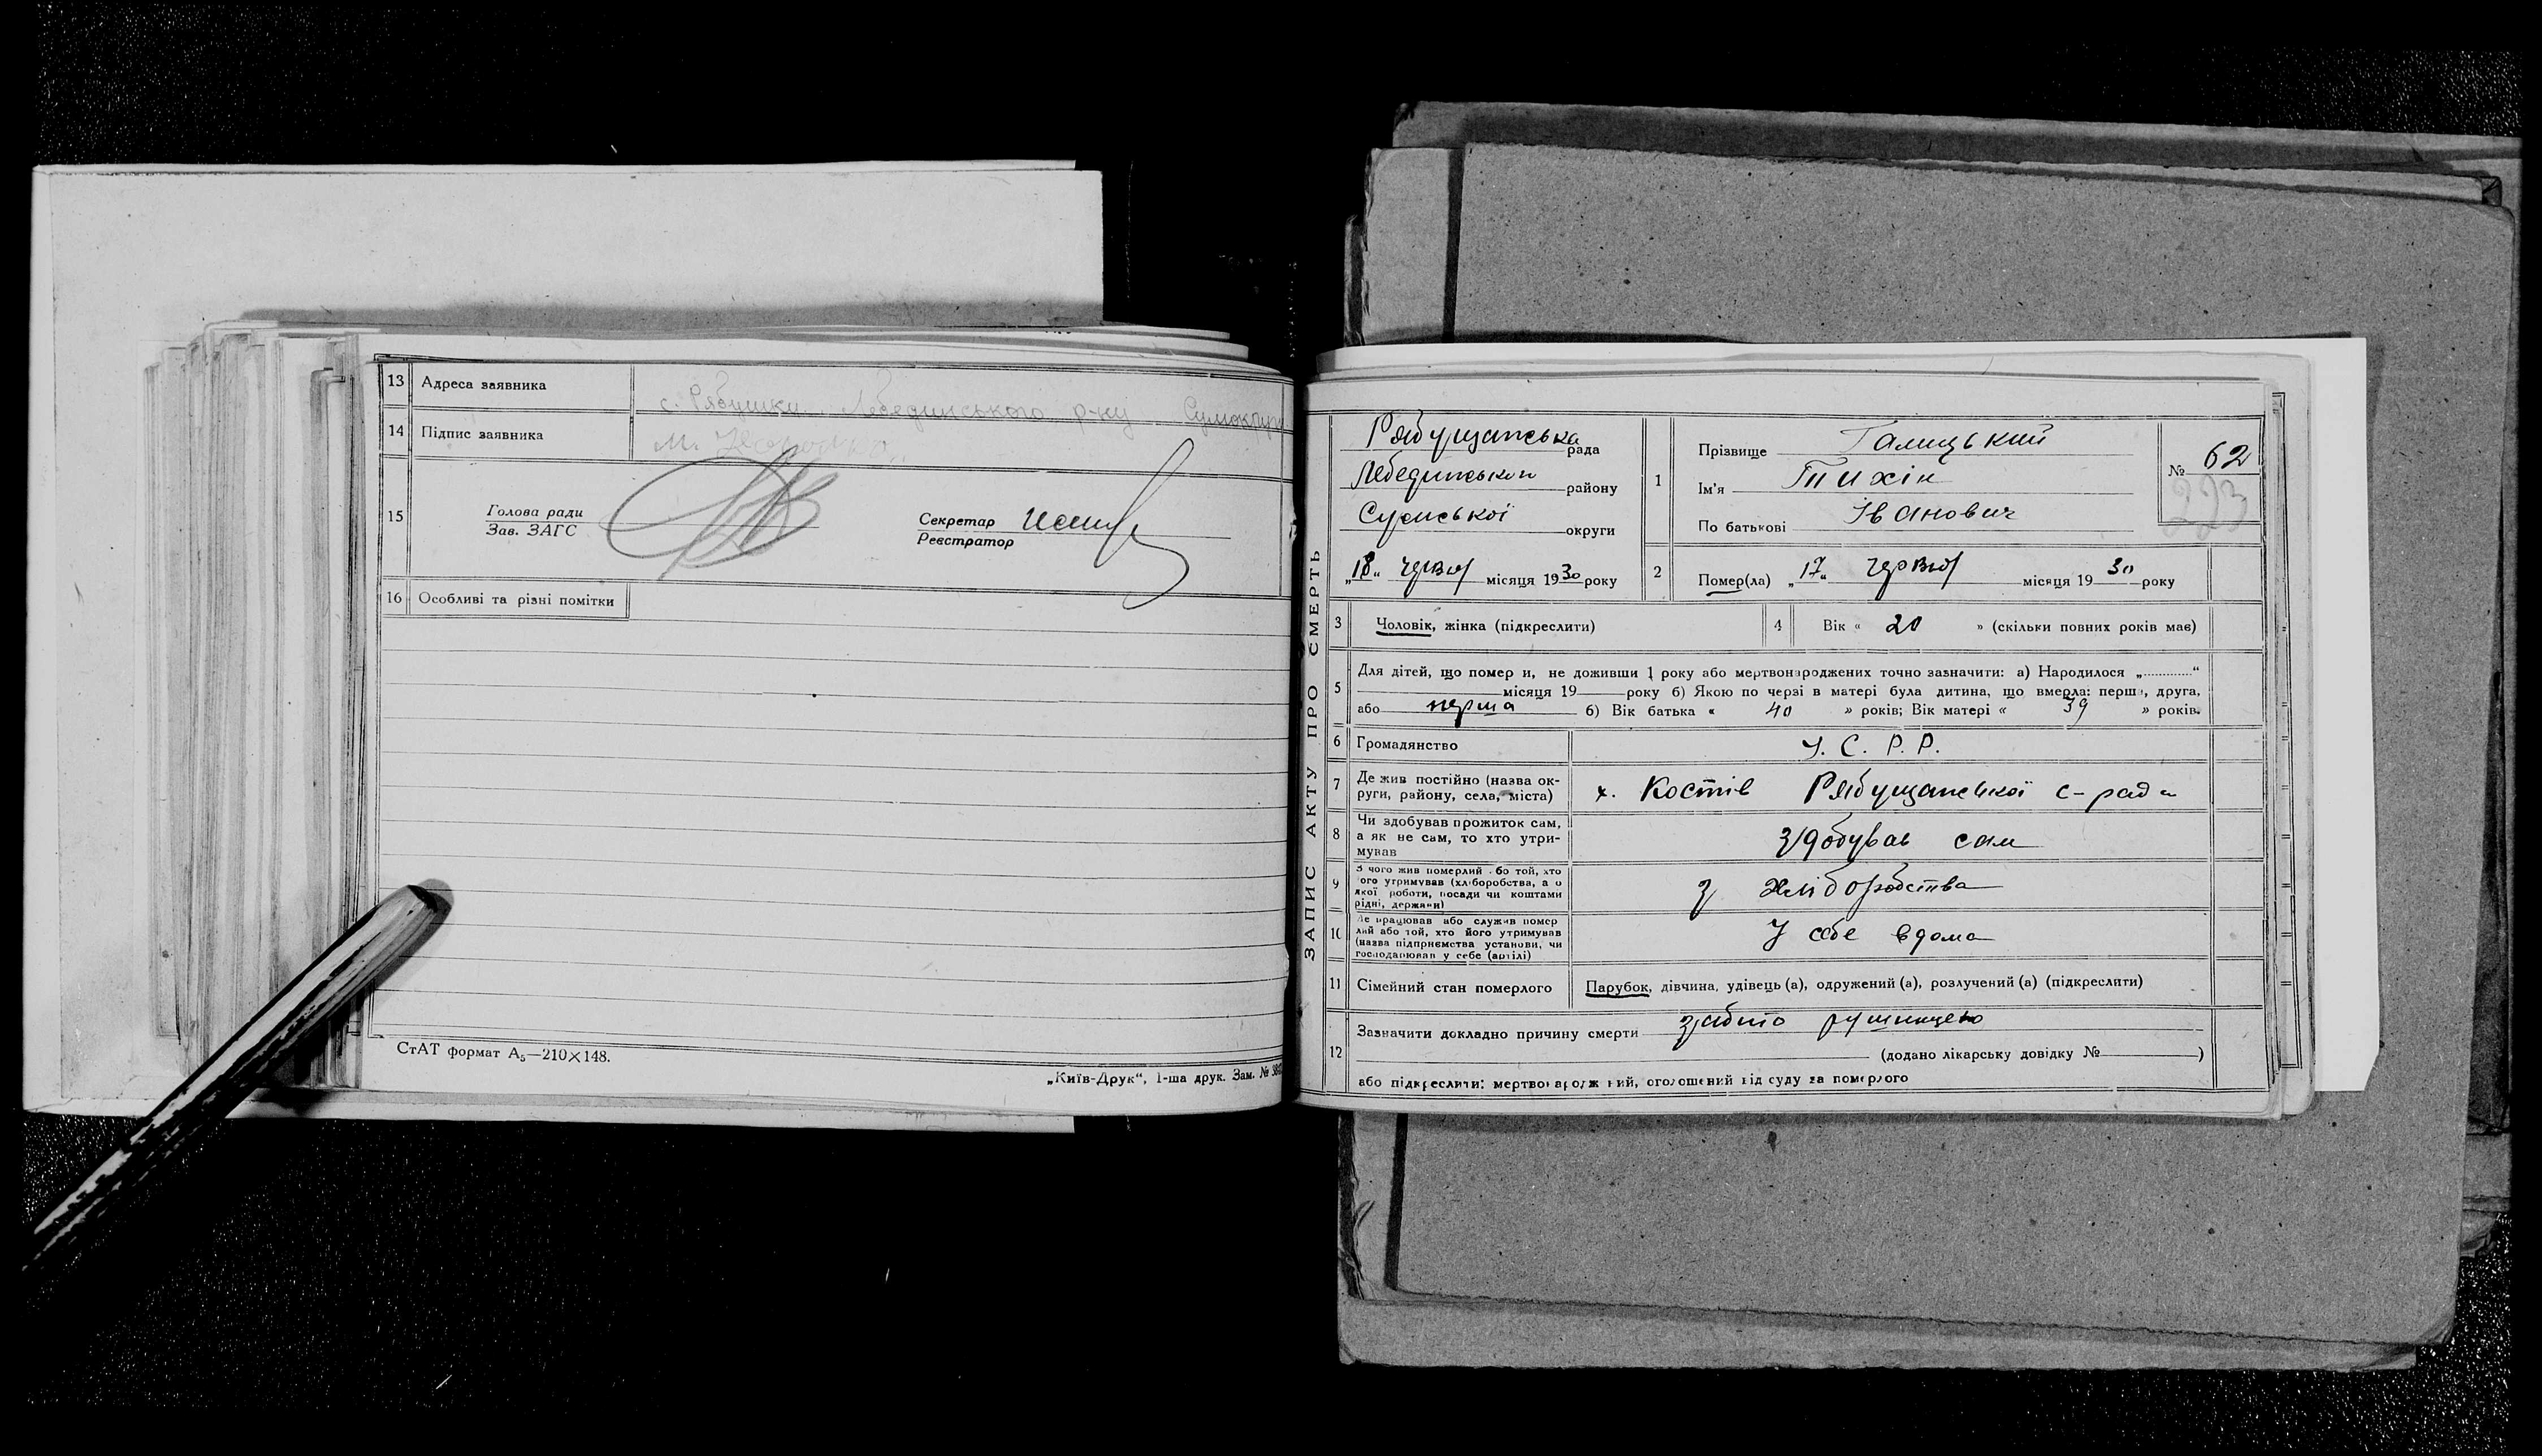 13 Адреса заявника с. Рябушки Лебединського р-ну Сумокруги
14 Підпис заявника М.
15 Голова ради
Зав. ЗАГС
Секретар
Реєстратор
16 Особливі та різні помітки
СтАТ формат А5—210×148.
„Київ-Друк“, 1-ша друк. Зам. №
ЗАПИС АКТУ ПРО СМЕРТЬ
Рябущанська рада
Лебединської району
Сумської округи
„18“ червня місяця 1930 року
1 Прізвище Галицький
Ім'я Тихін
По батькові Іванович
№ 62
223
2 Помер(ла) „17“ червня місяця 1930 року
3 Чоловік, жінка (підкреслити)
4 Вік « 20 » (скільки повних років має)
5 Для дітей, що померли, не доживши 1 року або мертвонароджених точно зазначити: а) Народилося „............“
місяця 19 року б) Якою по черзі в матері була дитина, що вмерла: перша, друга,
або перша б) Вік батька « 40 » років; Вік матері « 39 » років.
6 Громадянство У. С. Р. Р.
7 Де жив постійно (назва ок-
руги, району, села, міста) х. Костів Рябущанської с-ради
8 Чи здобував прожиток сам,
а як не сам, то хто утри-
мував здобував сам
9 З чого жив померлий або той, хто
його утримував (хліборобства, або
якої роботи, посади чи коштами
рідні, держави) з хліборобства
10 Де працював або служив помер
лий або той, хто його утримував
(назва підприємства установи, чи
господарював у себе (артілі) У себе вдома
11 Сімейний стан померлого Парубок, дівчина, удівець (а), одружений (а), розлучений (а) (підкреслити)
12 Зазначити докладно причину смерти забито рушницею
(додано лікарську довідку № )
або підкреслити: мертвонароджений, оголошений від суду за померлого